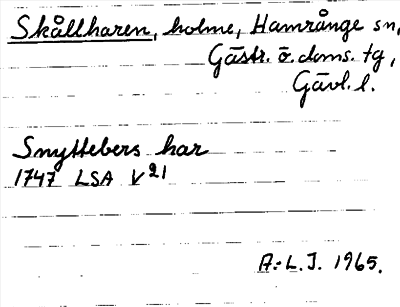 Skållharen, holme, Hamrånge sn,
Gästr. ö. doms. tg,
Gävl. l.
Snyttebers har
1747 LSA V21
A.-L. J. 1965.